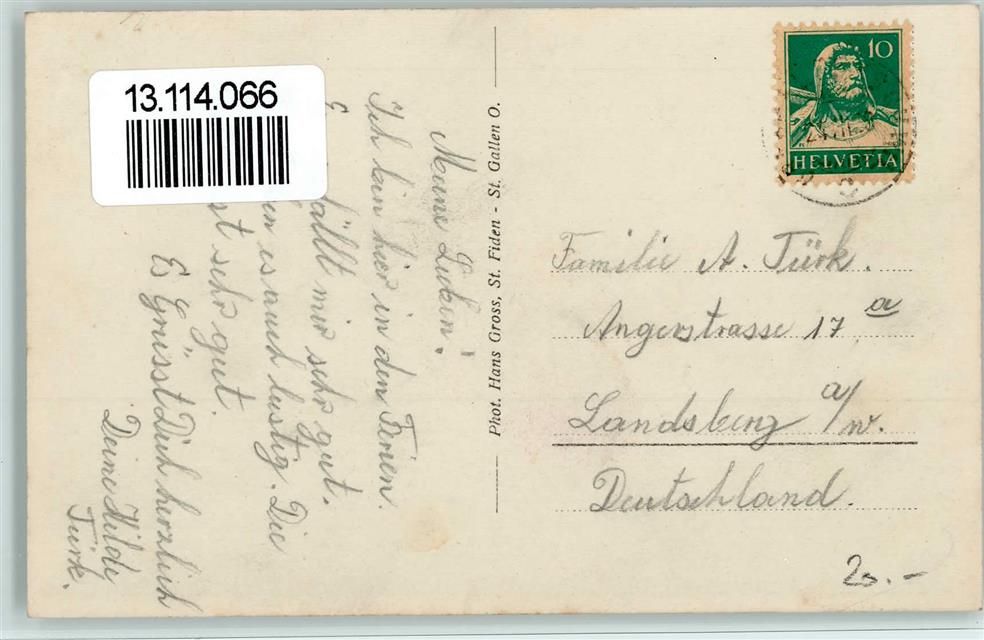 13.114.066
Meine Lieben!
Ich bin hier in den Ferien.
E fällt mir sehr gut.
en es auch lustig. Die
st sehr gut.
Es Grüsst Dich herzlich
Deine Hilde
Türk.
Phot. Hans Gross, St. Fiden - St. Gallen O.
10
HELVETIA
Familie A. Türk.
Angerstrasse 17 a
Landsberg a/w.
Deutschland.
20.-